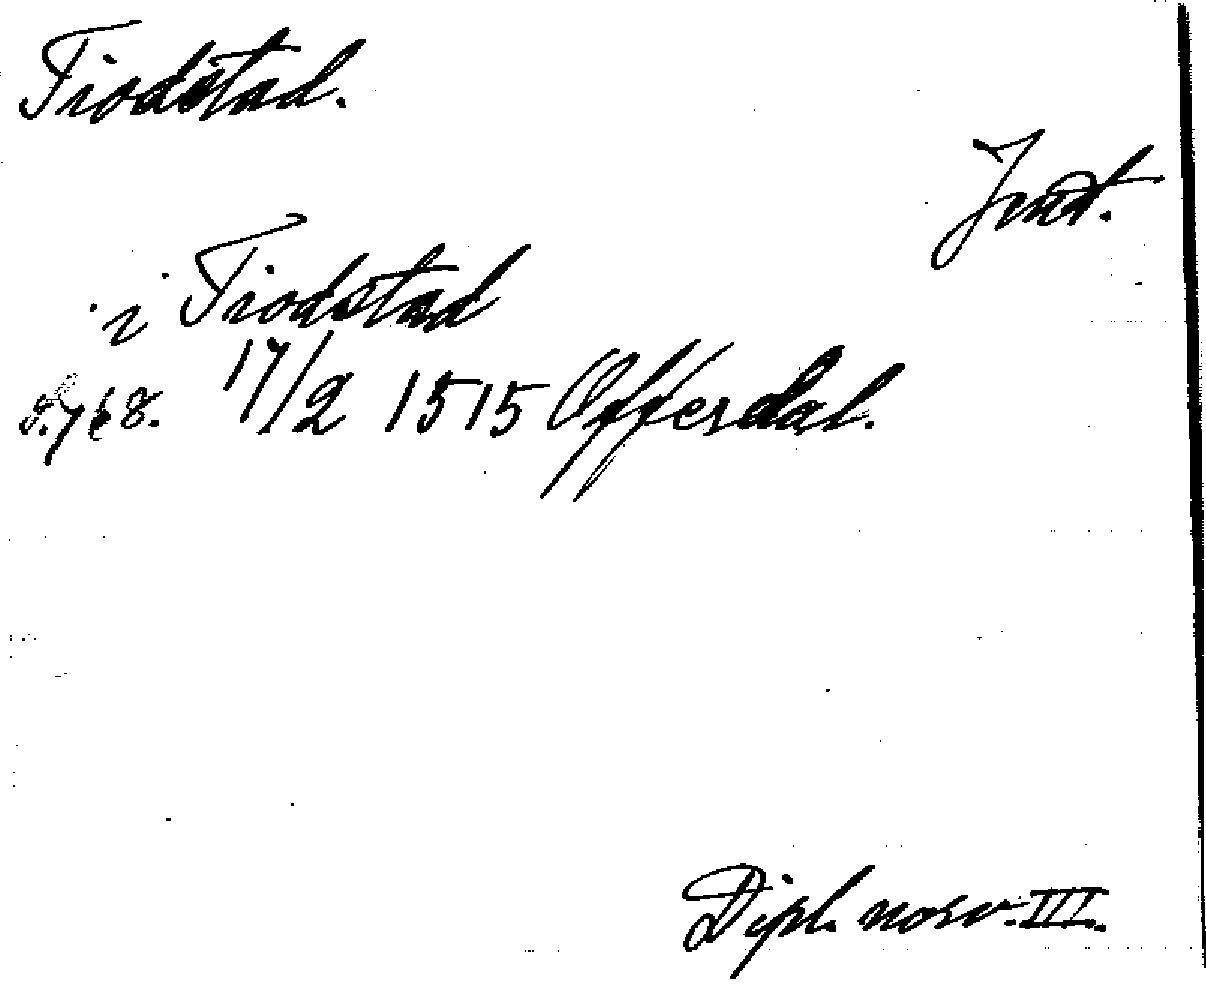 Tiodstad.
Jmt.
i Tiodstad
s. 768. 17/2 1515 Offerdal.
Dipl. norv. III.